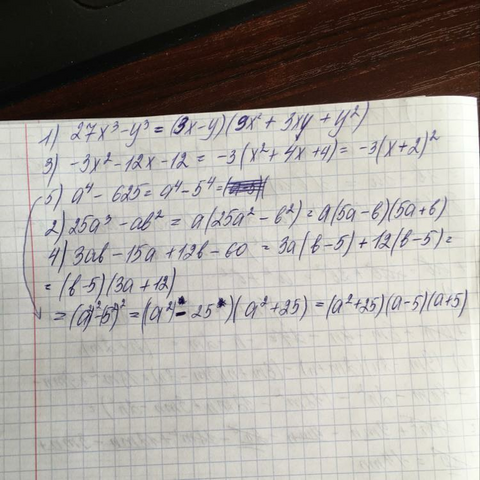 1) 27x³-y³ = (3x-y)(9x² + 3xy + y²)
3) -3x²-12x-12 = -3(x²+4x+4) = -3(x+2)²
5) a⁴ - 625 = a⁴-5⁴ =
2) 25a³ - ab² = a(25a² - b²) = a(5a-b)(5a+b)
4) 3ab - 15a + 12b - 60 = 3a(b-5) + 12(b-5) =
= (b-5)(3a+12)
= (a²)²-(5²)² = (a² - 25)(a² + 25) = (a²+25)(a-5)(a+5)